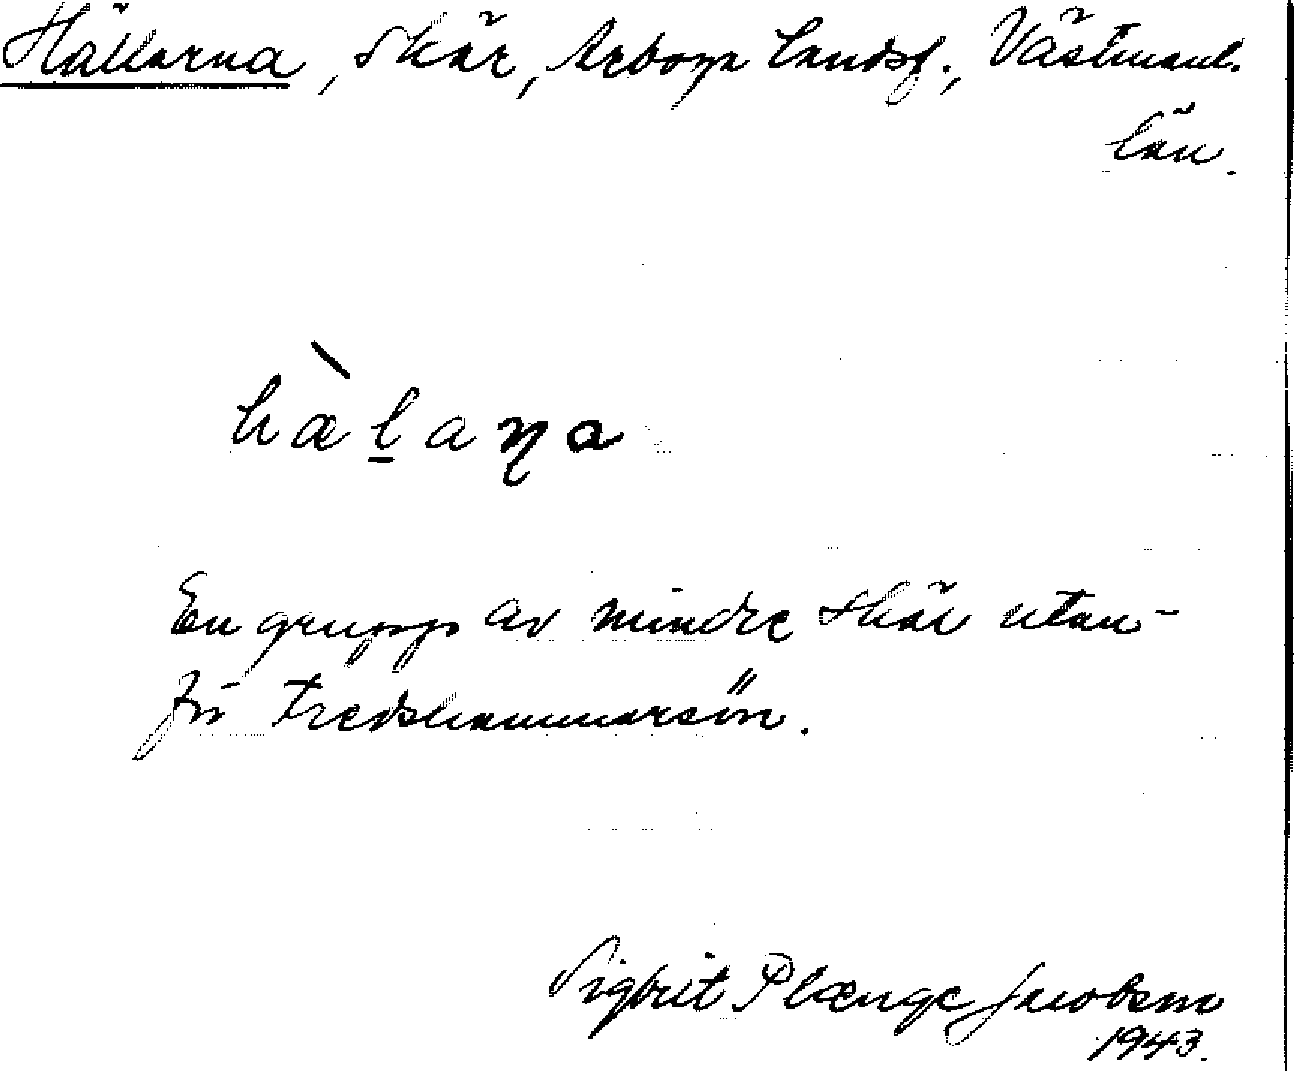 Hällarna, skär, Arboga landsf., Västmanl.
län.
hæ̀l̠aɳa
En grupp av mindre skär utan-
för Fredshammarsön.
Sigbrit Plænge Jacobson
1943.